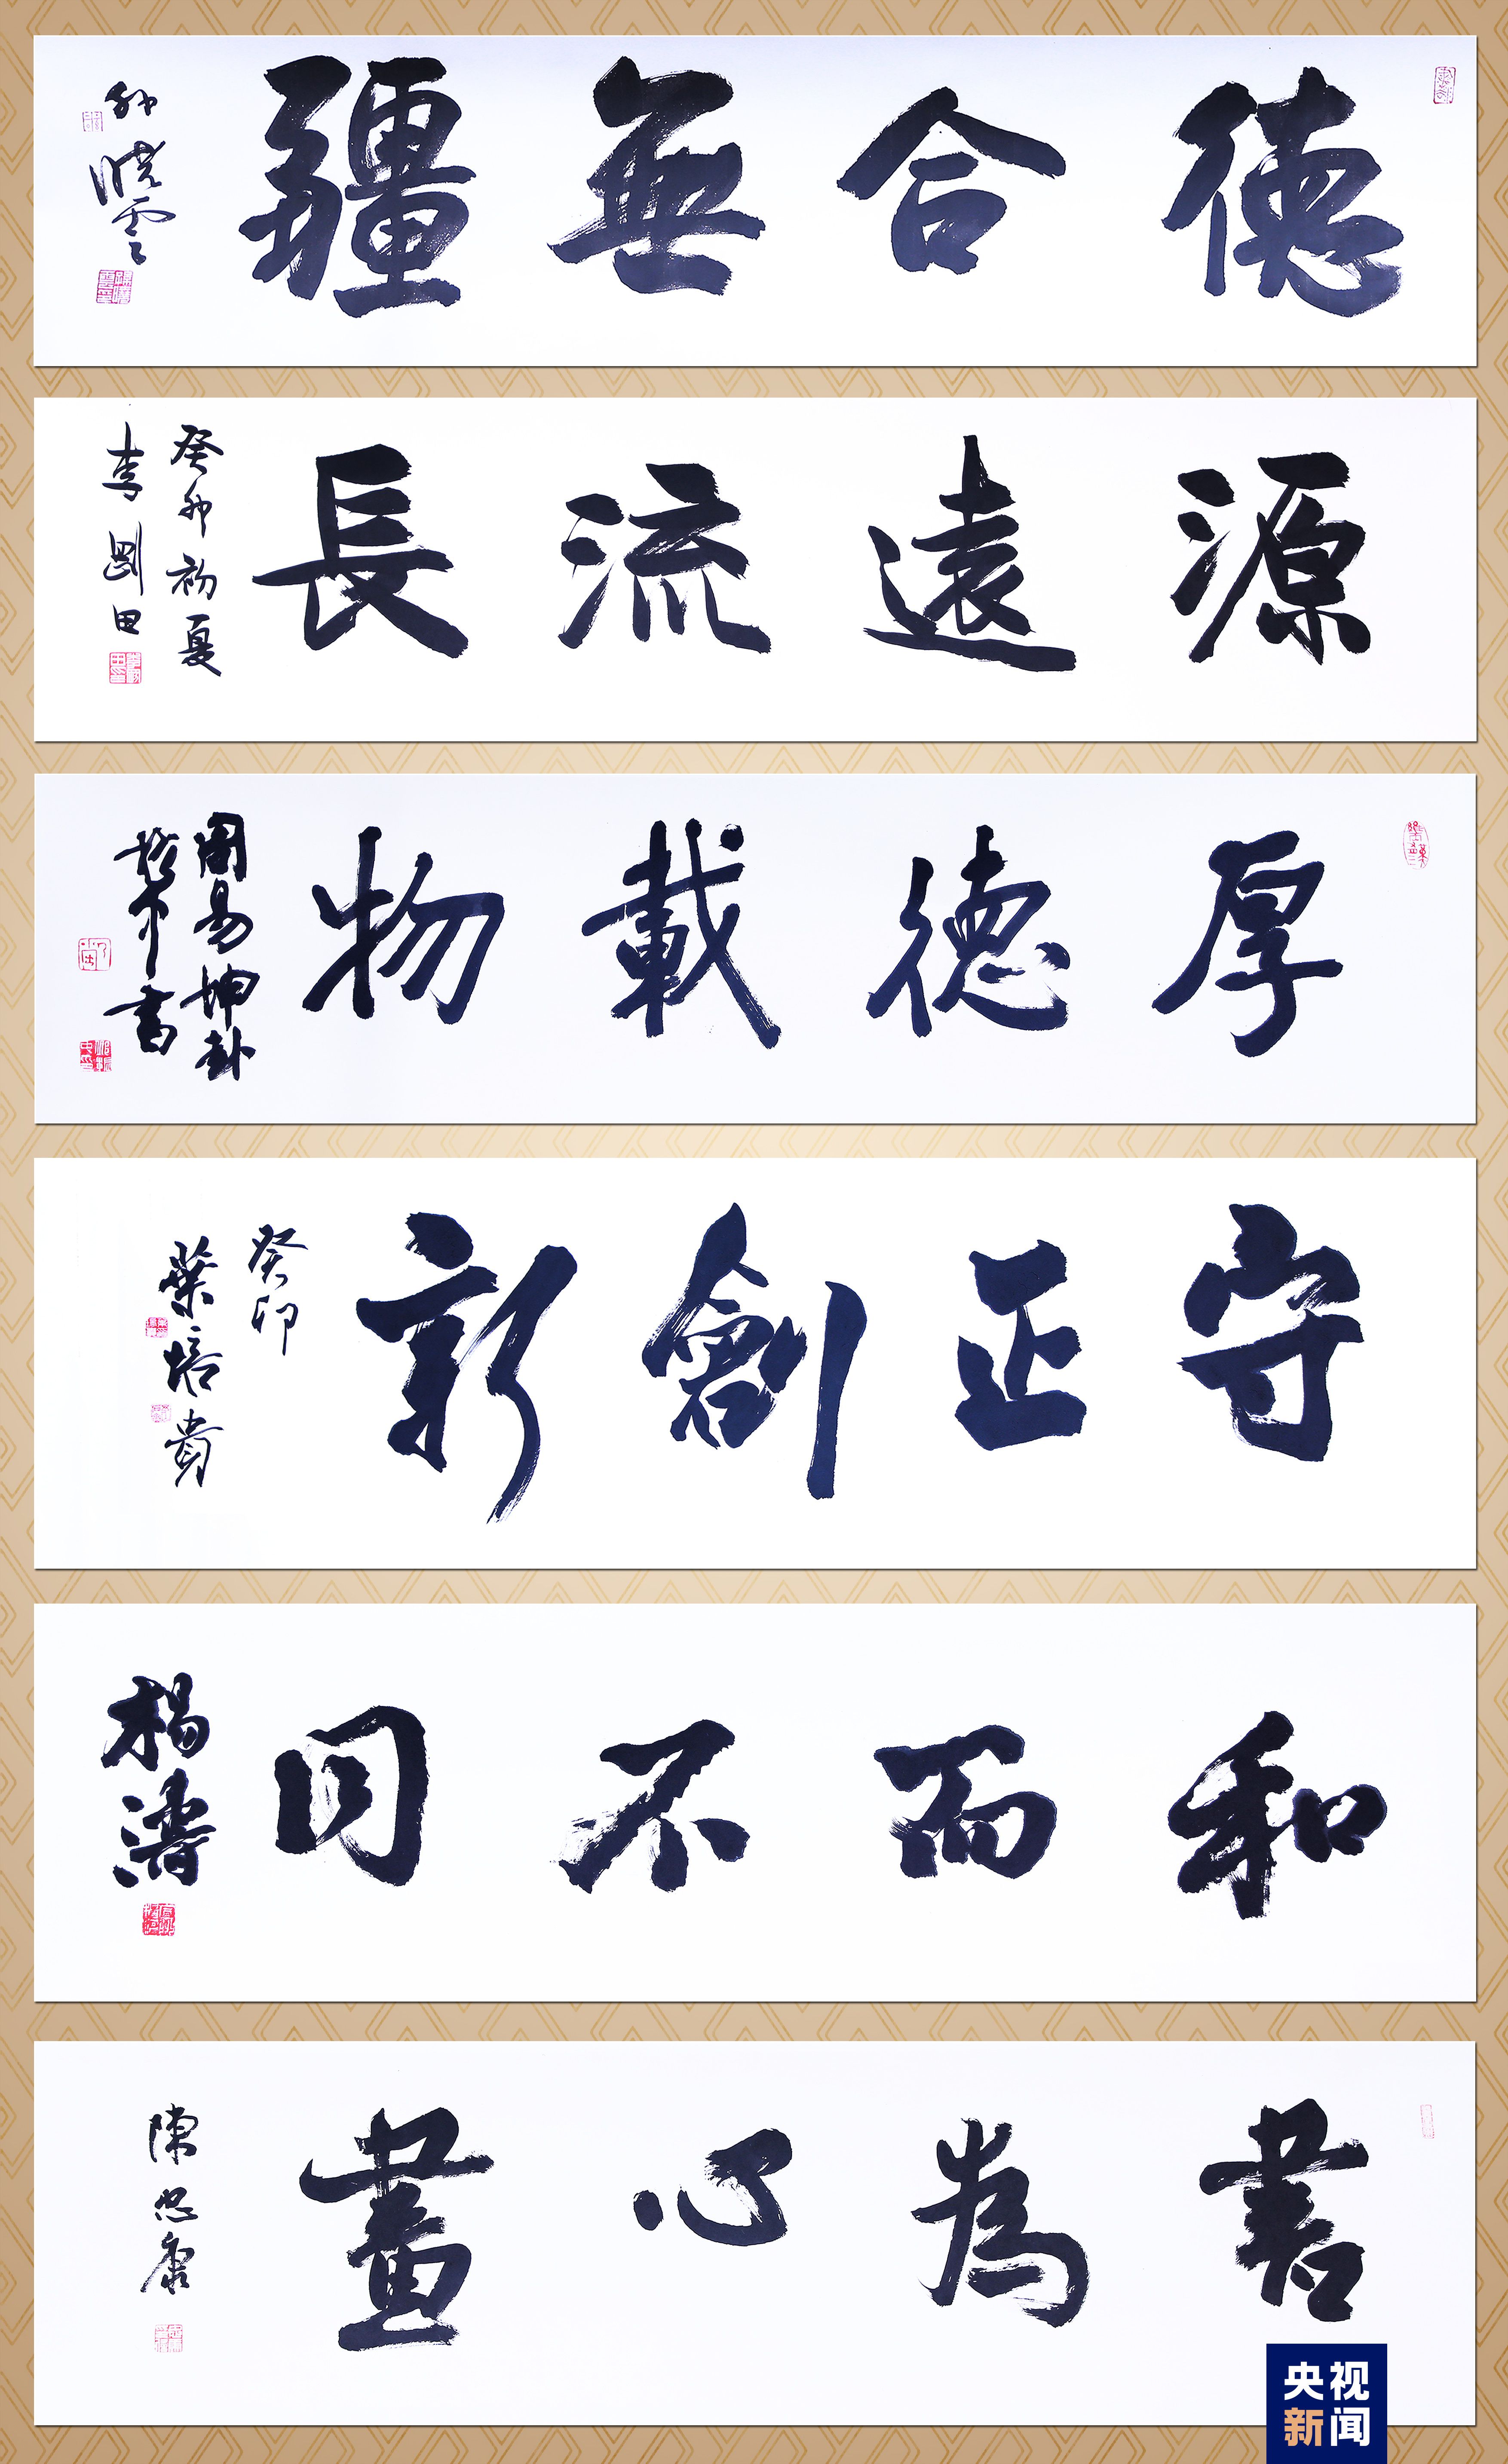 德合無疆
孫曉雲
源遠流長
癸卯初夏
李剛田
厚德載物
周易坤卦
守正創新
癸卯
葉培貴
和而不同
楊濤
書為心畫
陳忠康
央视
新闻